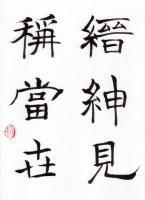 縉紳見
稱當在